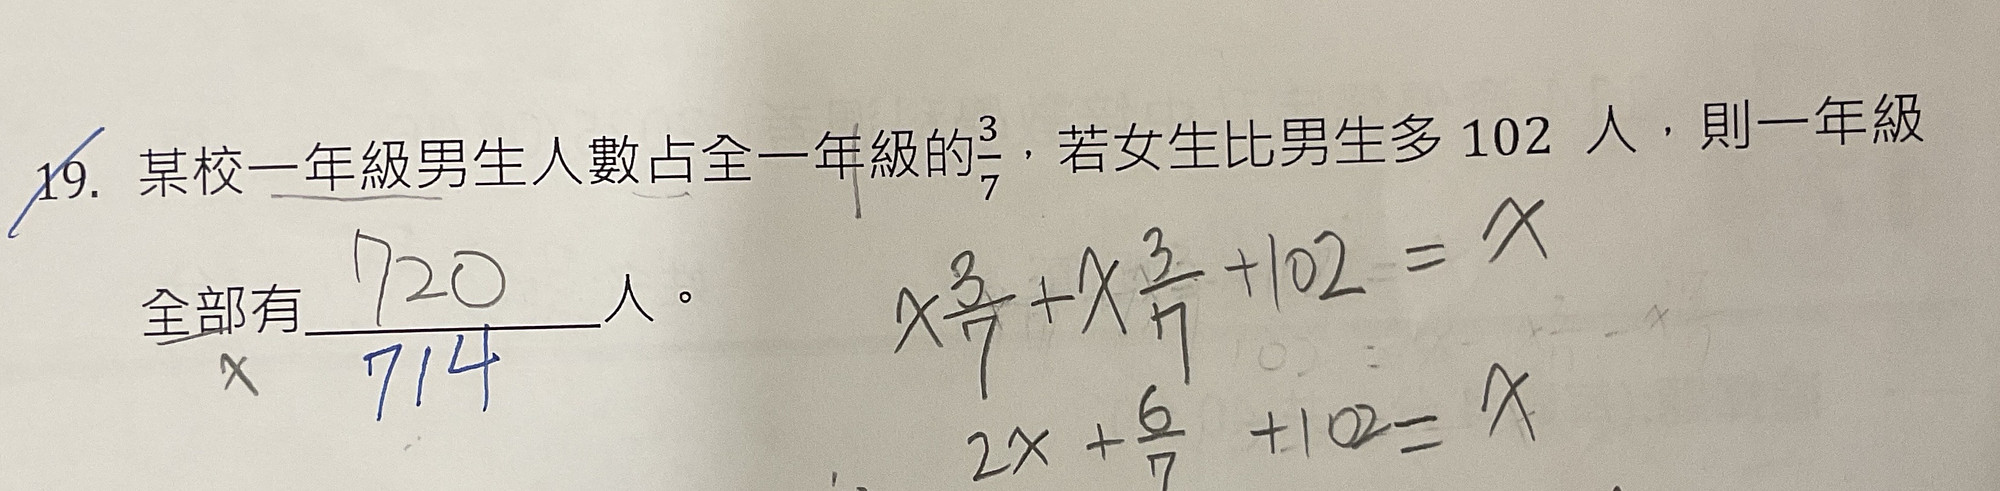 19. 某校一年級男生人數占全一年級的3/7，若女生比男生多 102 人，則一年級
全部有 720 人。
x 714
x 3/7 + x 3/7 + 102 = x
2x + 6/7 + 102 = x